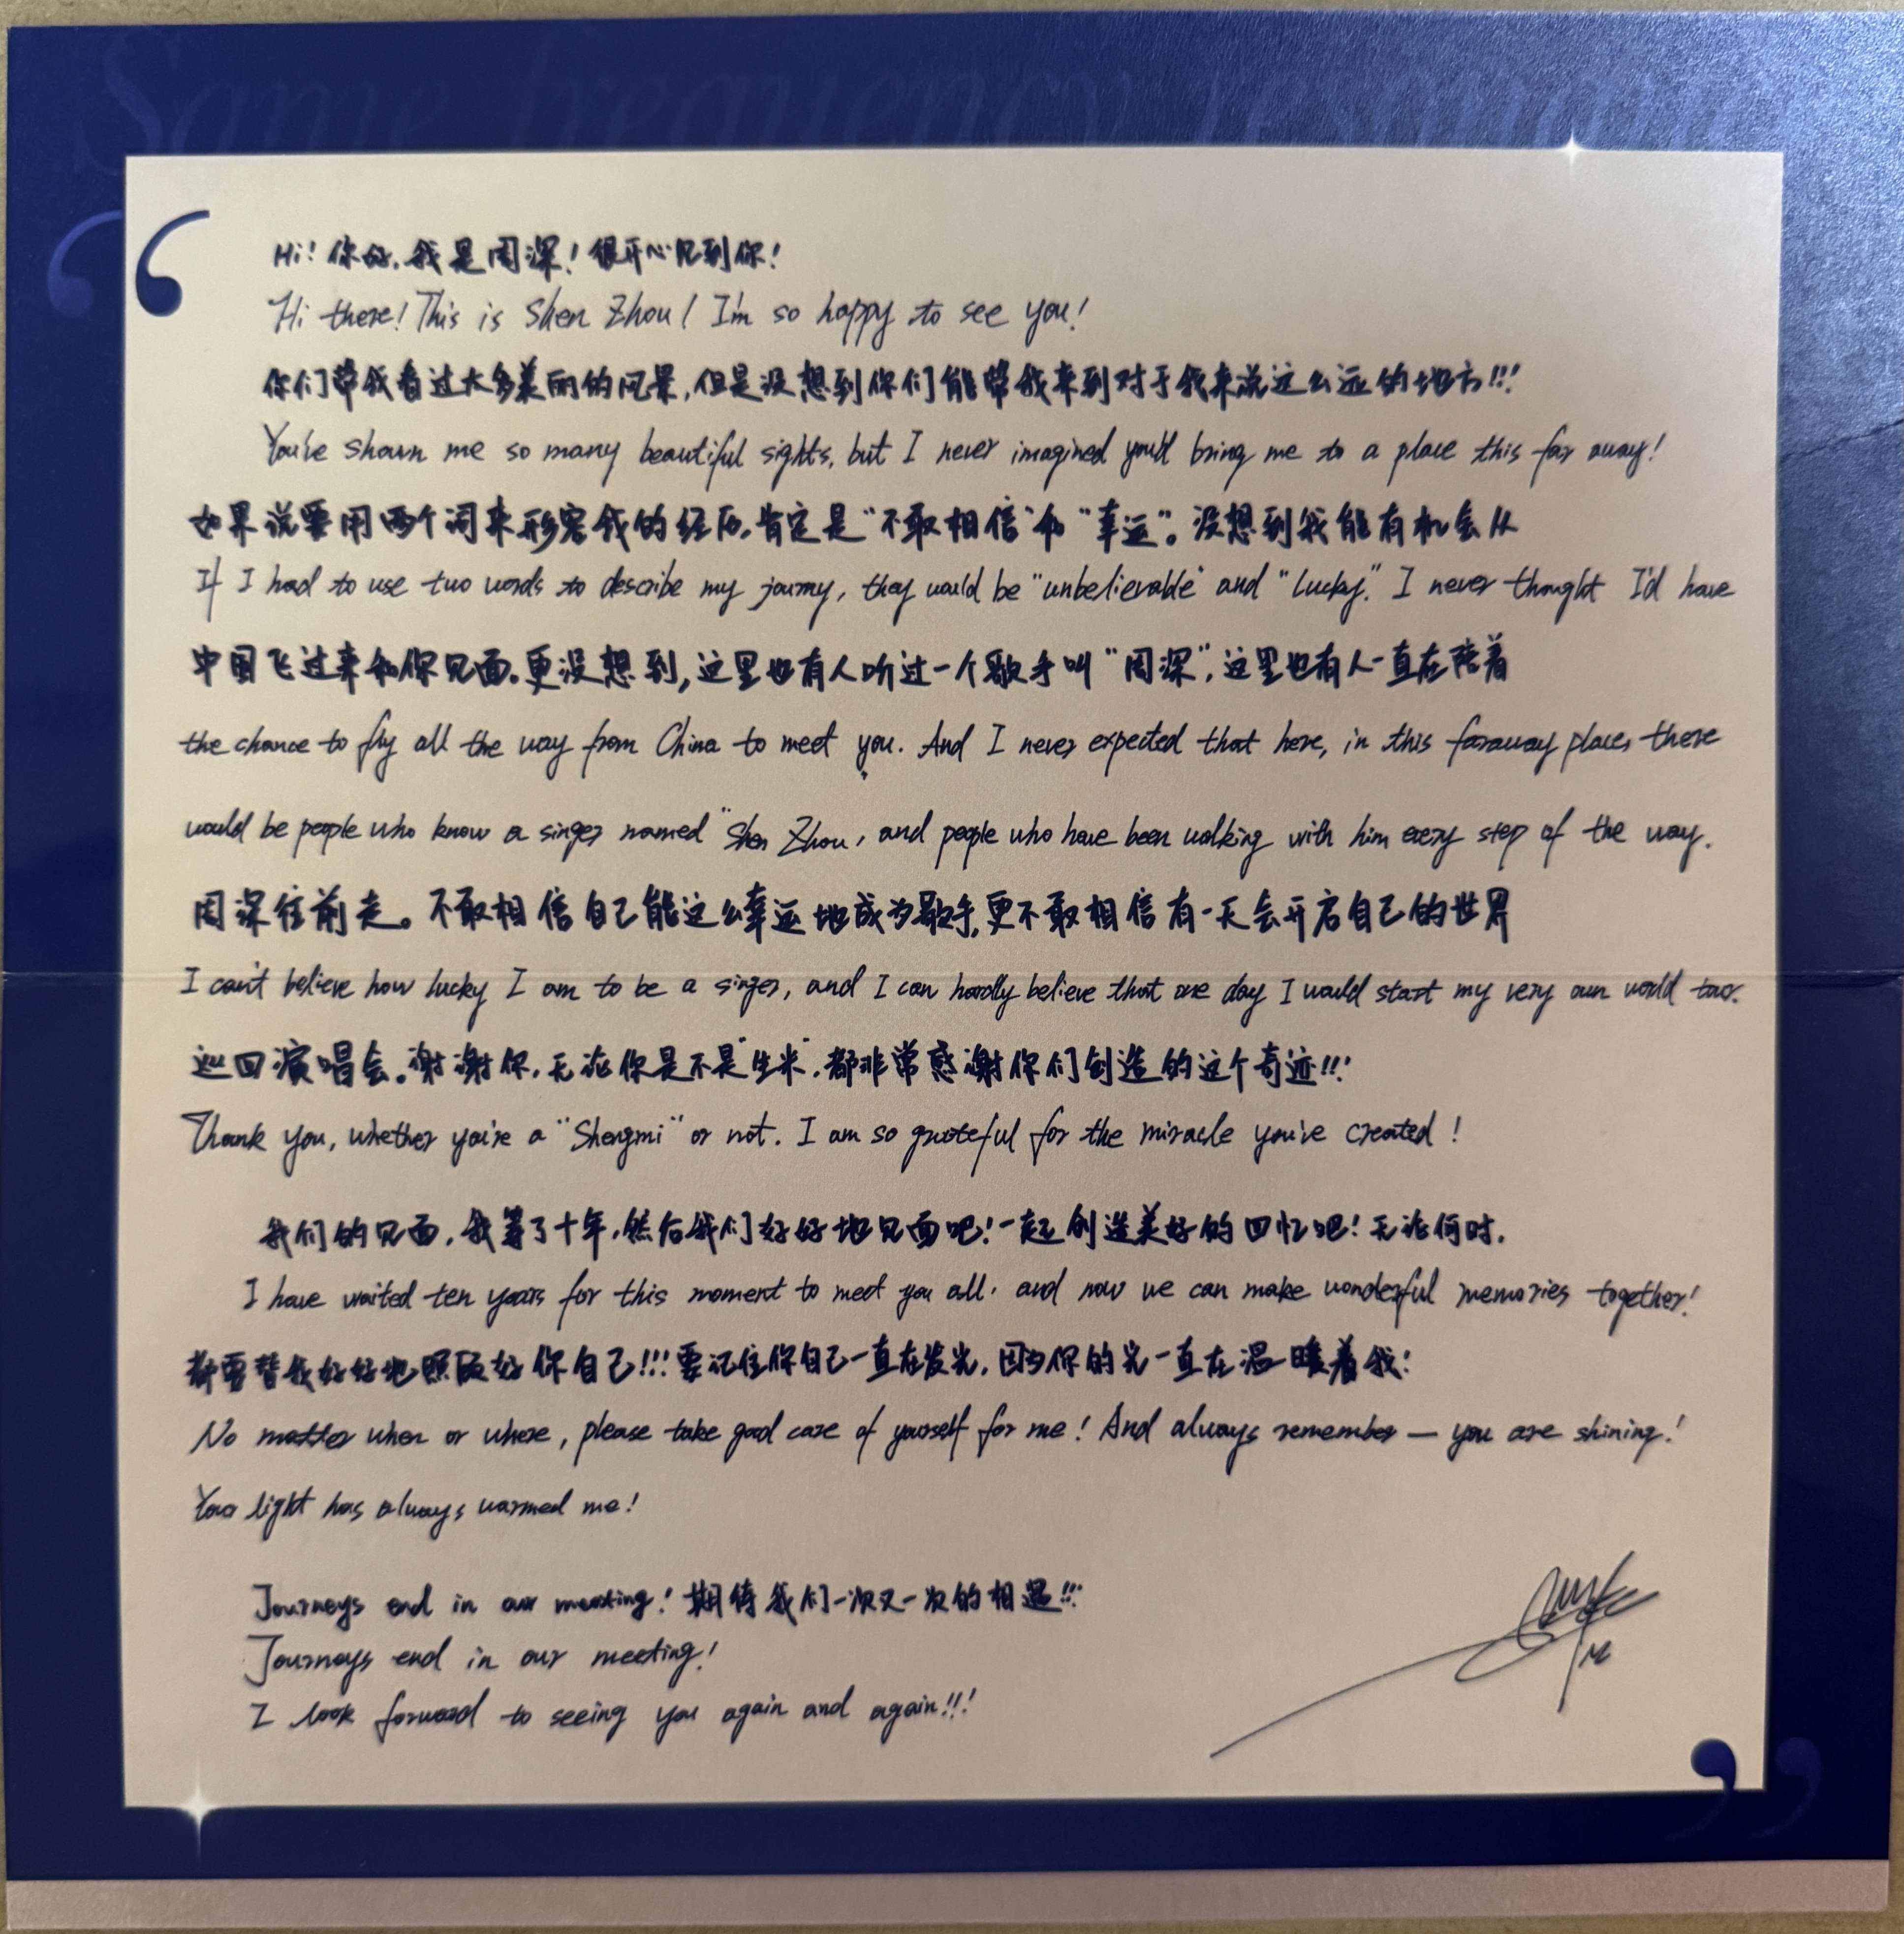 Same frequency resonance
Hi! 你好，我是周深！很开心见到你！
Hi there! This is Shen Zhou! I'm so happy to see you!
你们带我看过太多美丽的风景，但是没想到你们能带我来到对于我来说这么远的地方!!!
You've shown me so many beautiful sights, but I never imagined you'd bring me to a place this far away!
如果说要用两个词来形容我的经历，肯定是“不敢相信”和“幸运”。没想到我能有机会从
If I had to use two words to describe my journy, they would be "unbelievable" and "lucky". I never thought I'd have
中国飞过来和你见面。更没想到，这里也有人听过一个歌手叫“周深”，这里也有人一直在陪着
the chance to fly all the way from China to meet you. And I never expected that here, in this faraway place, there
would be people who know a singer named "Shen Zhou, and people who have been walking with him every step of the way.
周深往前走。不敢相信自己能这么幸运地成为歌手，更不敢相信有一天会开启自己的世界
I can't believe how lucky I am to be a singer, and I can hardly believe that one day I would start my very own world tour.
巡回演唱会。谢谢你，无论你是不是“生米”，都非常感谢你们创造的这个奇迹!!!
Thank you, whether you're a "Shengmi" or not. I am so grateful for the miracle you've created!
我们的见面，我等了十年，然后我们好好地见面吧！一起创造美好的回忆吧！无论何时，
I have waited ten years for this moment to meet you all, and now we can make wonderful memories together!
都要替我好好地照顾好你自己!!!要记住你自己一直在发光，因为你的光一直在温暖着我！
No matter when or where, please take good care of yourself for me! And always remember — you are shining!
Your light has always warmed me!
Journeys end in our meeting! 期待我们一次又一次的相遇!!!
Journeys end in our meeting!
I look forward to seeing you again and again!!!